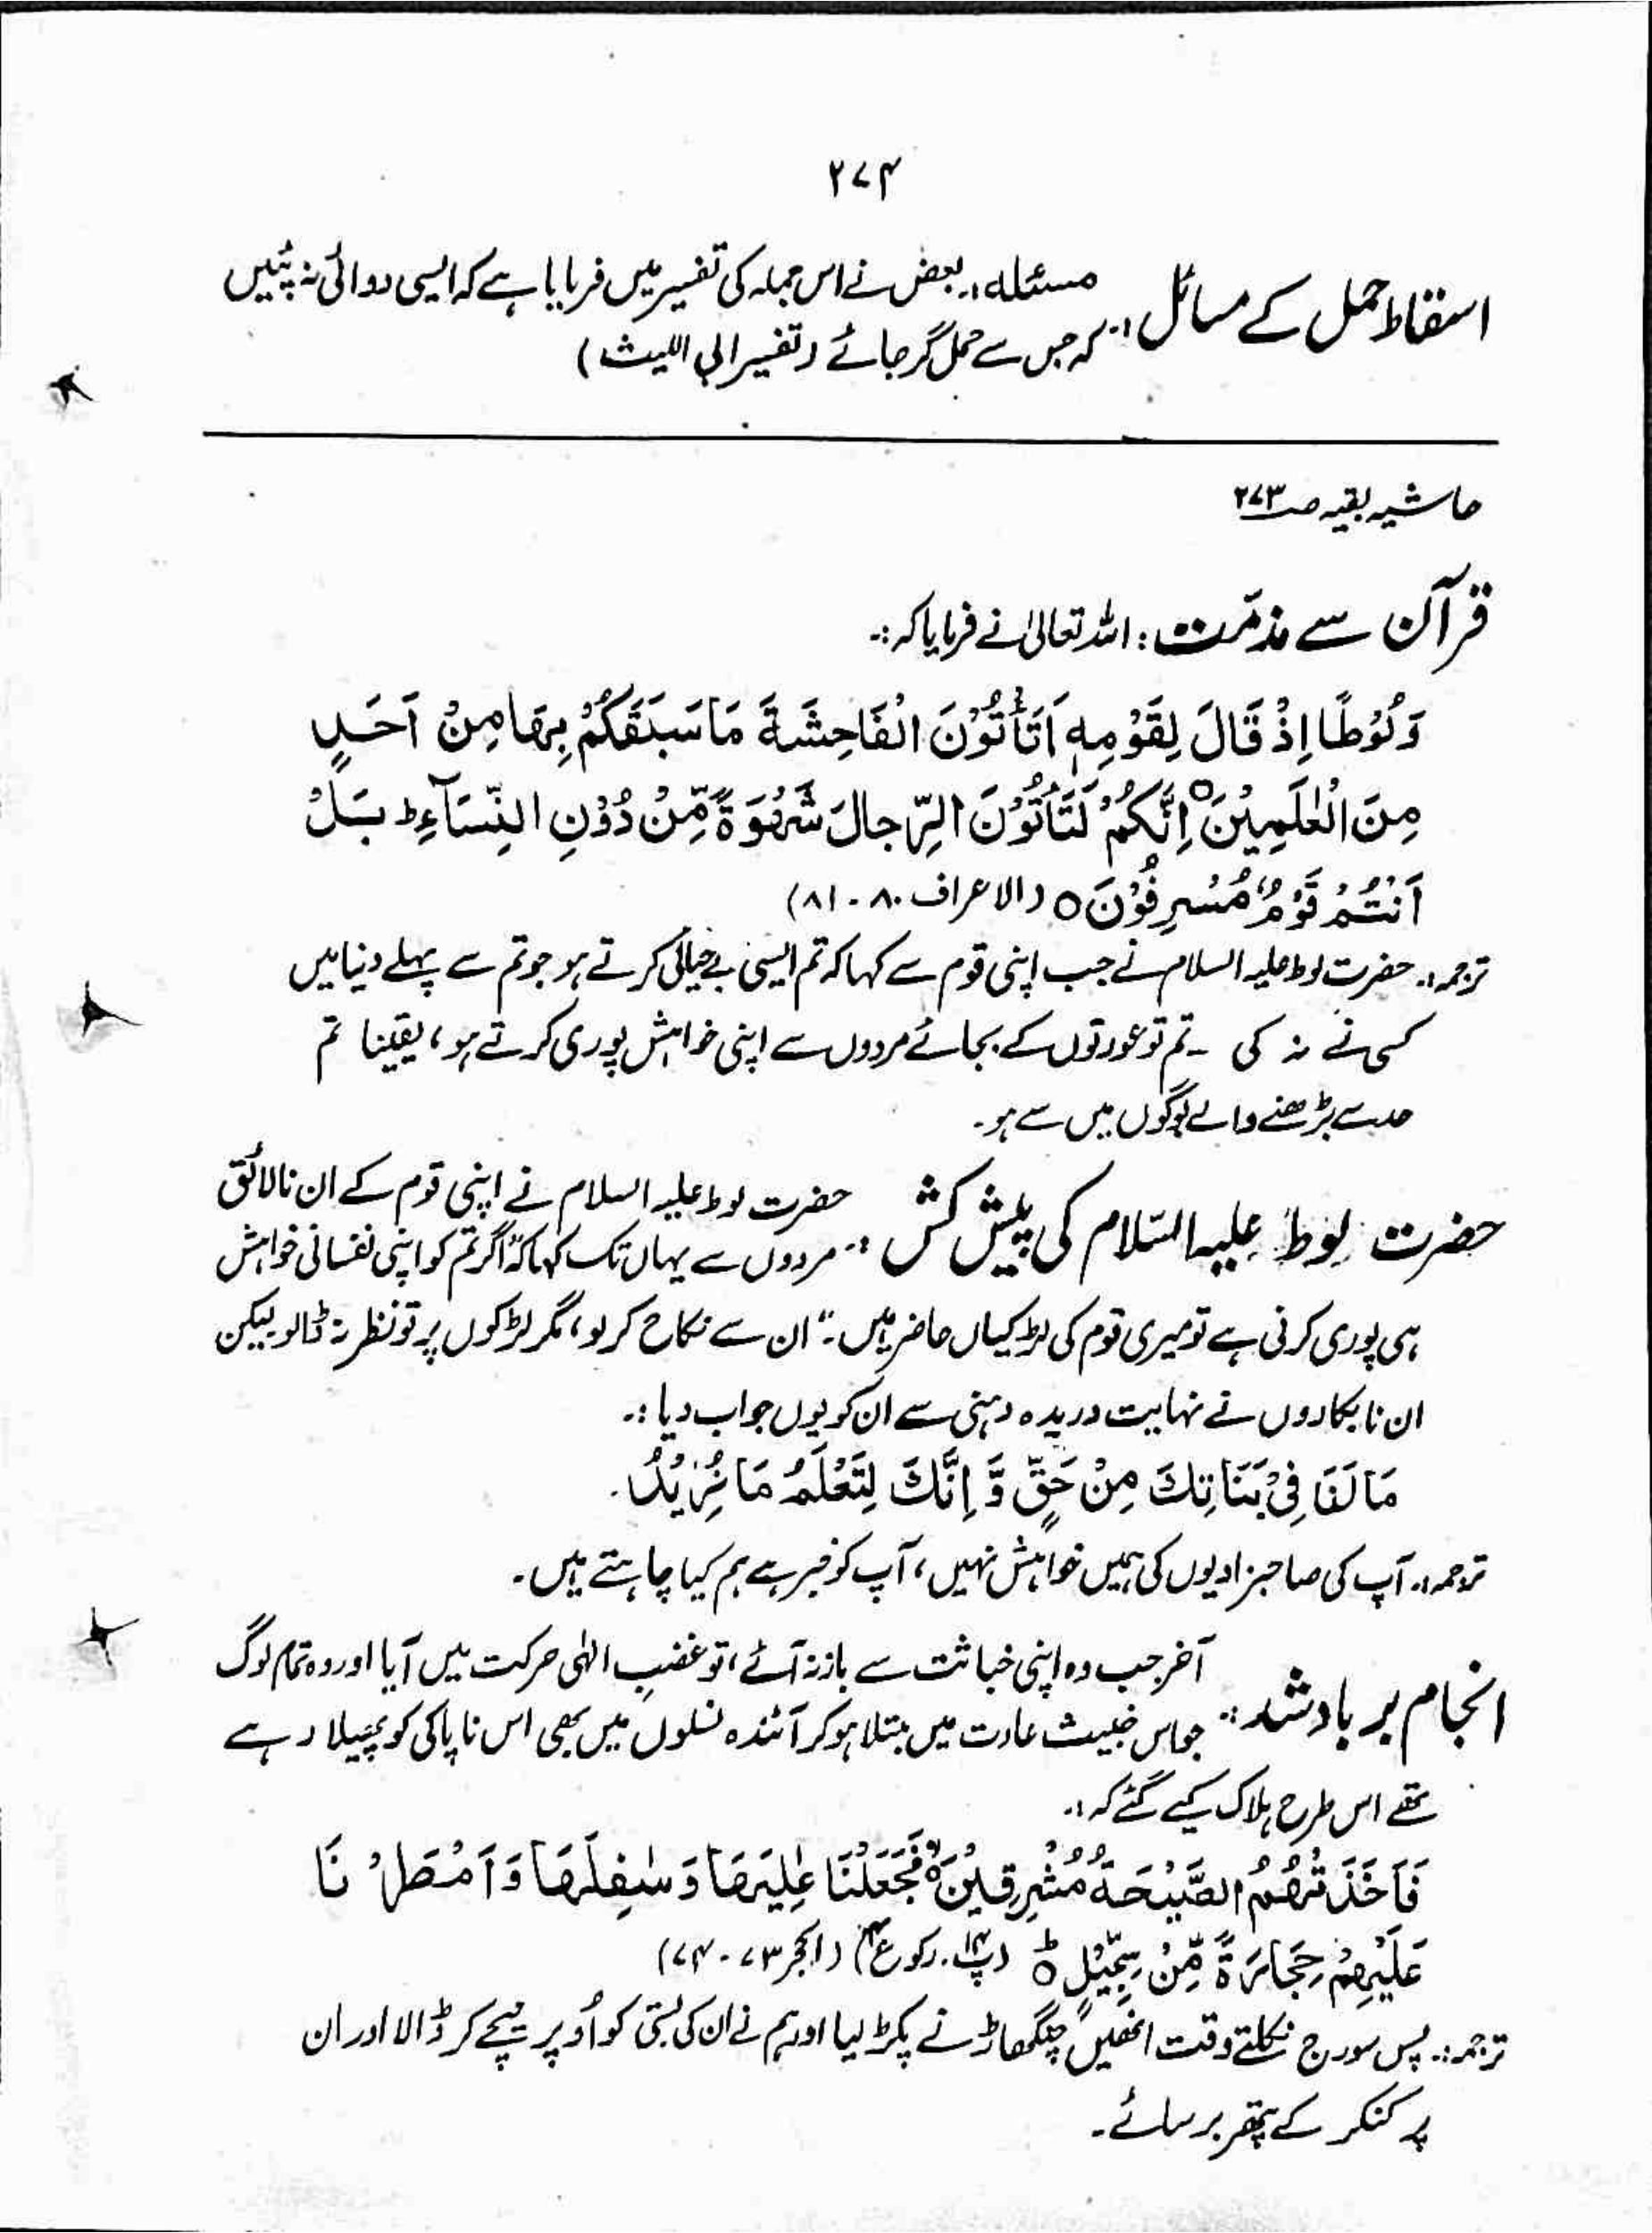 ۲۷۴
اسقاط حمل کے مسائل :۔ مسئلہ :۔ بعض نے اس جملہ کی تفسیر میں فرمایا ہے کہ ایسی دوائی نہ پئیں
کہ جس سے حمل گر جائے (تفسیر ابی اللیث)
حاشیہ بقیہ صـ ۲۷۳
قرآن سے مذمّت : اللہ تعالیٰ نے فرمایا کہ :۔
وَلُوْطًا اِذْ قَالَ لِقَوْمِهٖ اَتَاْتُوْنَ الْفَاحِشَةَ مَا سَبَقَكُمْ بِهَا مِنْ اَحَدٍ
مِنَ الْعٰلَمِيْنَ ○ اِنَّكُمْ لَتَاْتُوْنَ الرِّجالَ شَهْوَةً مِّنْ دُوْنِ النِّسَآءِ ؕ بَلْ
اَنْتُمْ قَوْمٌ مُّسْرِفُوْنَ ○ (الاعراف ۸۰ - ۸۱)
ترجمہ :۔ حضرت لوط علیہ السلام نے جب اپنی قوم سے کہا کہ تم ایسی بےحیائی کرتے ہو جو تم سے پہلے دنیا میں
کسی نے نہ کی ۔ تم تو عورتوں کے بجائے مردوں سے اپنی خواہش پوری کرتے ہو، یقینا تم
حد سے بڑھنے والے لوگوں میں سے ہو۔
حضرت لوط علیہ السّلام کی پیش کش :۔ حضرت لوط علیہ السلام نے اپنی قوم کے ان نالائق
مردوں سے یہاں تک کہا کہ "اگر تم کو اپنی نفسانی خواہش
ہی پوری کرنی ہے تو میری قوم کی لڑکیاں حاضر ہیں۔" ان سے نکاح کر لو، مگر لڑکوں پر تو نظر نہ ڈالو۔ لیکن
ان نابکاروں نے نہایت دریدہ دہنی سے ان کو یوں جواب دیا :۔
مَا لَنَا فِيْ بَنَاتِكَ مِنْ حَقٍّ وَّ اِنَّكَ لِتَعْلَمُ مَا نُرِيْدُ۔
ترجمہ :۔ آپ کی صاحبزادیوں کی ہمیں خواہش نہیں، آپ کو خبر ہے ہم کیا چاہتے ہیں۔
انجام برباد شد :۔ آخر جب وہ اپنی خباثت سے باز نہ آئے، تو غضبِ الٰہی حرکت میں آیا اور وہ تمام لوگ
جو اس خبیث عادت میں مبتلا ہو کر آئندہ نسلوں میں بھی اس ناپاکی کو پھیلا رہے
تھے اس طرح ہلاک کیے گئے کہ :۔
فَاَخَذَتْهُمُ الصَّيْحَةُ مُشْرِقِيْنَ ○ فَجَعَلْنَا عٰلِيَهَا وَسٰفِلَهَا وَاَمْطَرْنَا
عَلَيْهِمْ حِجَارَةً مِّنْ سِجِّيْلٍ ؕ○ (پ ۱۴ . رکوع ۴) (الحجر ۷۳ - ۷۴)
ترجمہ :۔ پس سورج نکلتے وقت انھیں چنگھاڑ نے پکڑ لیا اور ہم نے ان کی بستی کو اُوپر نیچے کر ڈالا اور ان
پر کنکر کے پتھر برسائے۔